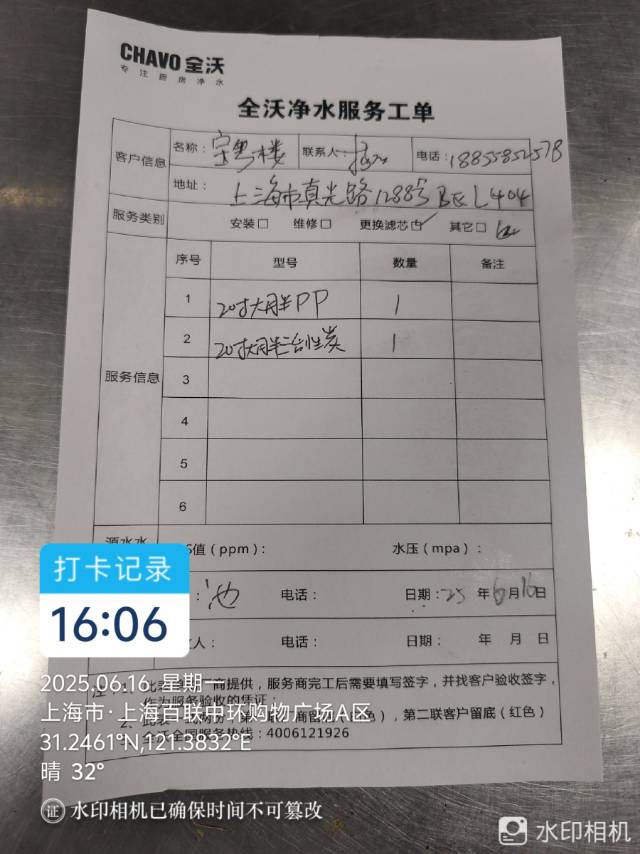 CHAVO 全沃
专注厨房净水
全沃净水服务工单
客户信息 名称: 宝粤楼 联系人: 电话: 18855852578
地址: 上海市真光路1288号B区L404
服务类别 安装☐ 维修☐ 更换滤芯☑ 其它☐
服务信息 序号 型号 数量 备注
1 20寸大胖PP 1
2 20寸大胖活性炭 1
3
4
5
6
源水水 值(ppm): 水压(mpa):
: 池 电话: 日期: 25 年 6 月 16 日
人: 电话: 日期: 年 月 日
商提供,服务商完工后需要填写签字,并找客户验收签字,
作为服务验收的凭证;
第二联客户留底(红色)
全沃全国服务热线:4006121926
打卡记录
16:06
2025.06.16 星期一
上海市·上海百联中环购物广场A区
31.2461°N,121.3832°E
晴 32°
证 水印相机已确保时间不可篡改
水印相机